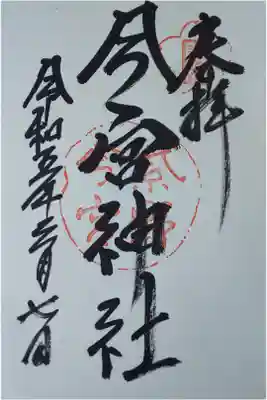 奉拝
今宮神社
令和五年六月七日